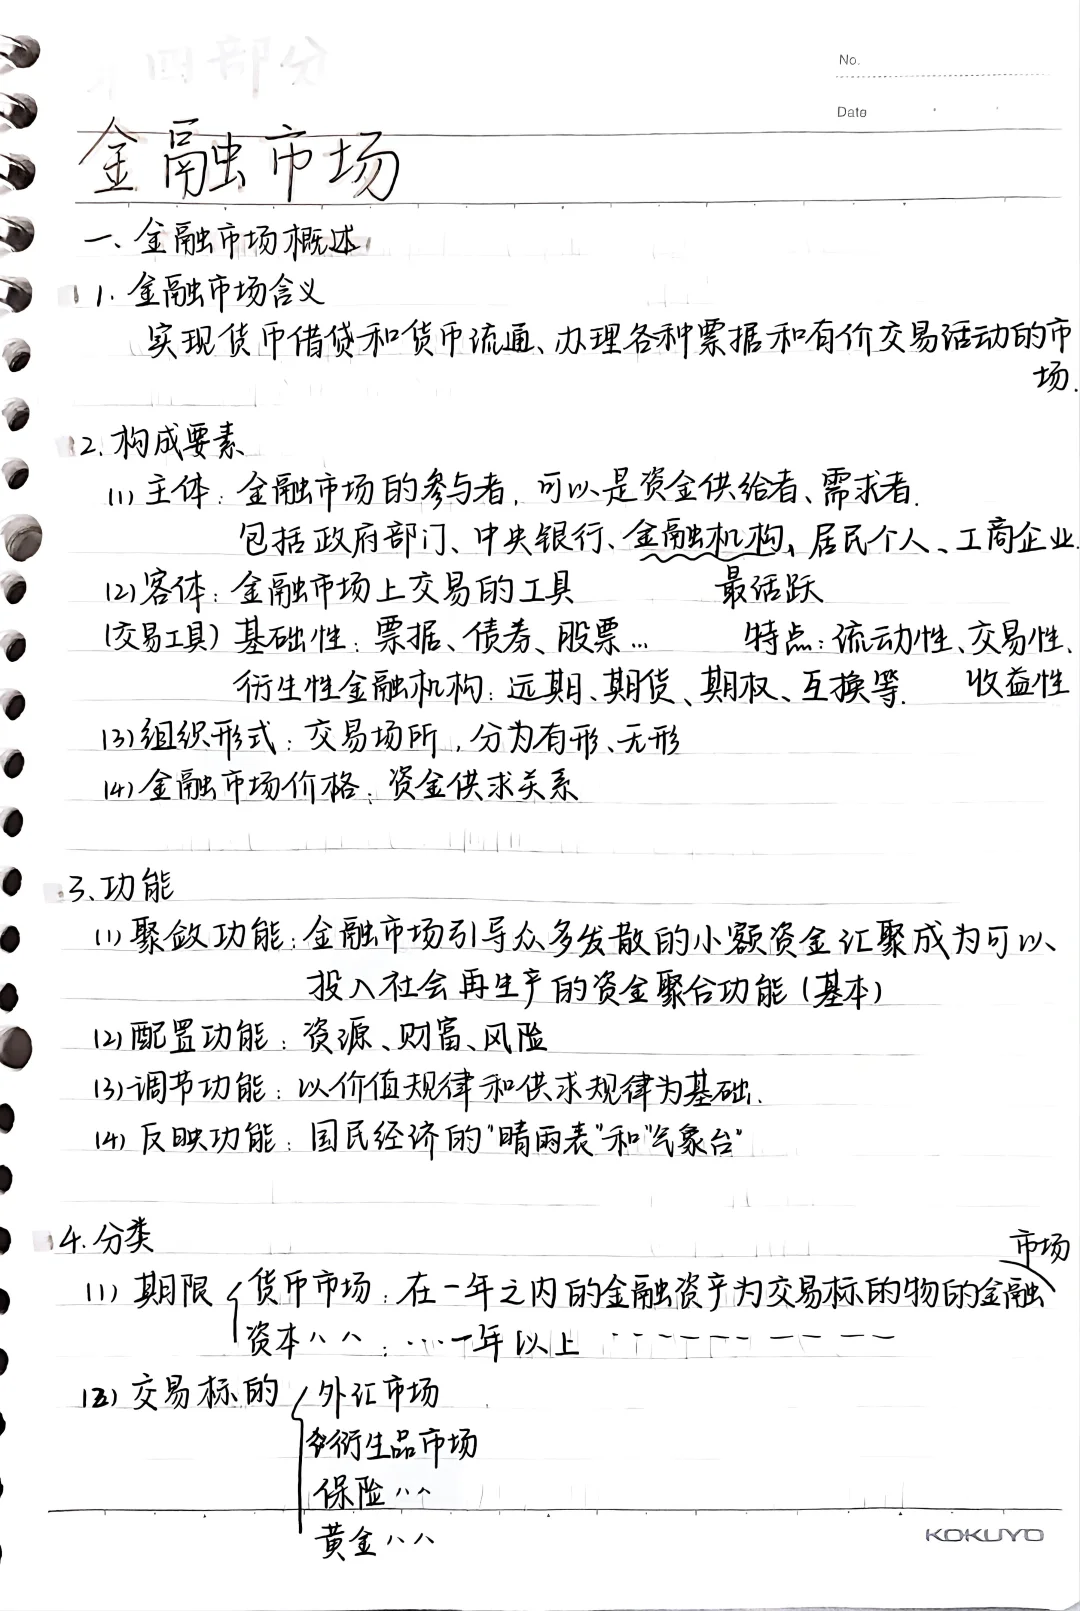 No.
Date
金融市场
一、金融市场概述
1. 金融市场含义
实现货币借贷和货币流通、办理各种票据和有价交易活动的市
场.
2. 构成要素
(1) 主体：金融市场的参与者，可以是资金供给者、需求者.
包括政府部门、中央银行、金融机构、居民个人、工商企业.
(2) 客体：金融市场上交易的工具 最活跃
(交易工具) 基础性：票据、债券、股票… 特点：流动性、交易性、
衍生性金融机构：远期、期货、期权、互换等. 收益性
(3) 组织形式：交易场所，分为有形、无形
(4) 金融市场价格：资金供求关系
3、功能
(1) 聚敛功能：金融市场引导众多发散的小额资金汇聚成为可以、
投入社会再生产的资金聚合功能 (基本)
(2) 配置功能：资源、财富、风险
(3) 调节功能：以价值规律和供求规律为基础.
(4) 反映功能：国民经济的"晴雨表"和"气象台"
4. 分类
市场
(1) 期限 货币市场：在一年之内的金融资产为交易标的物的金融
资本〃〃：…一年以上
(2) 交易标的 外汇市场
衍生品市场
保险〃〃
黄金〃〃
KOKUYO